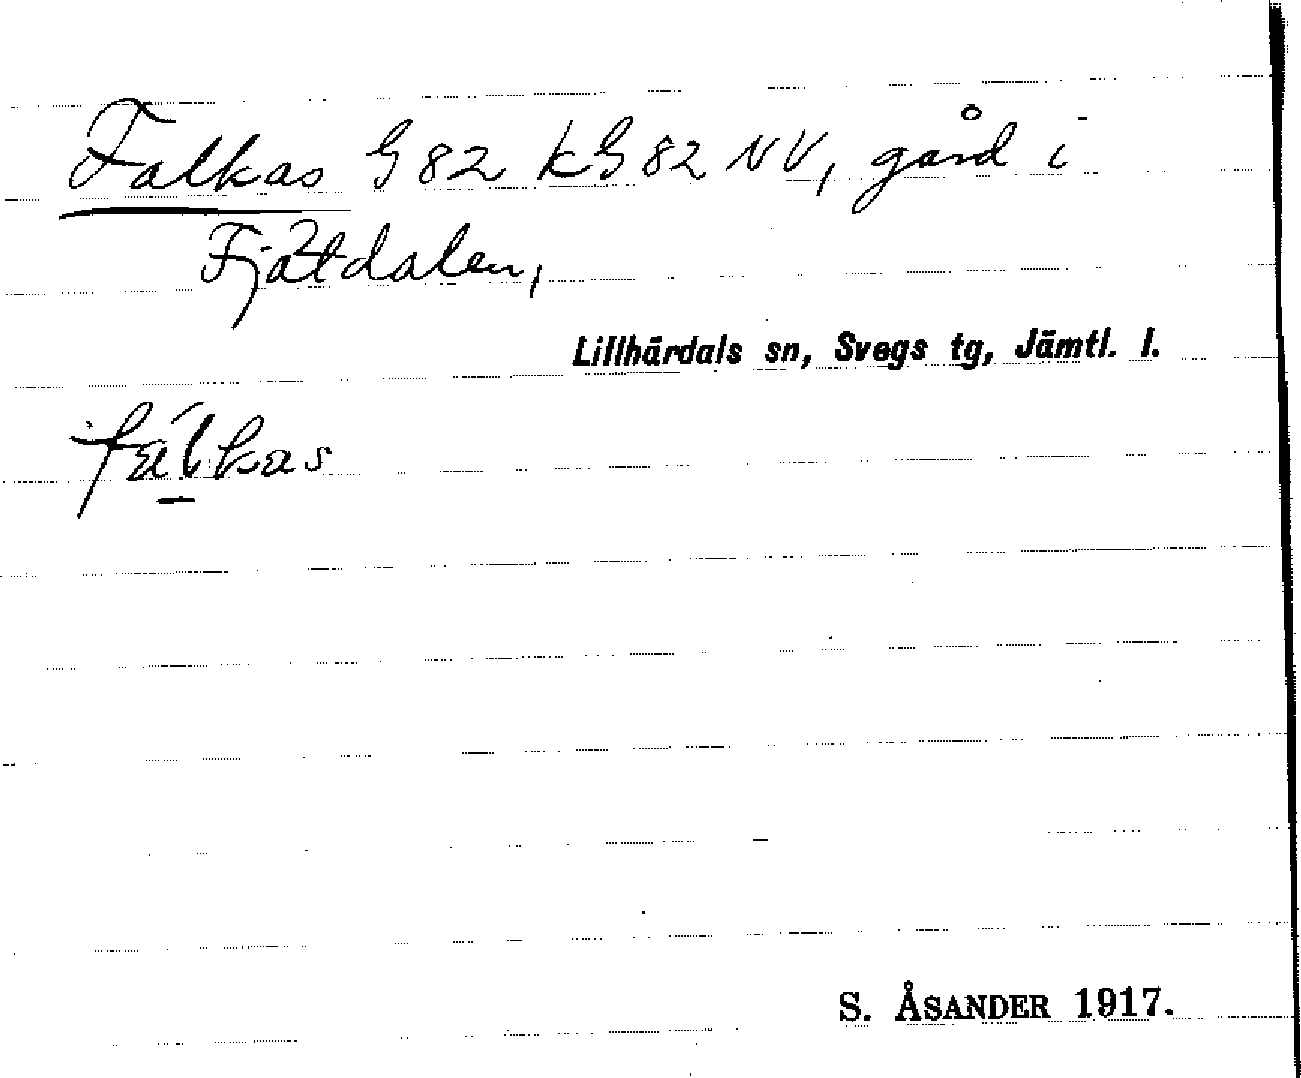 Falkas G 82 kG 82 NV, gård i
Fjätdalen,
Lillhärdals sn, Svegs tg, Jämtl. l.
fálkas
S. ÅSANDER 1917.